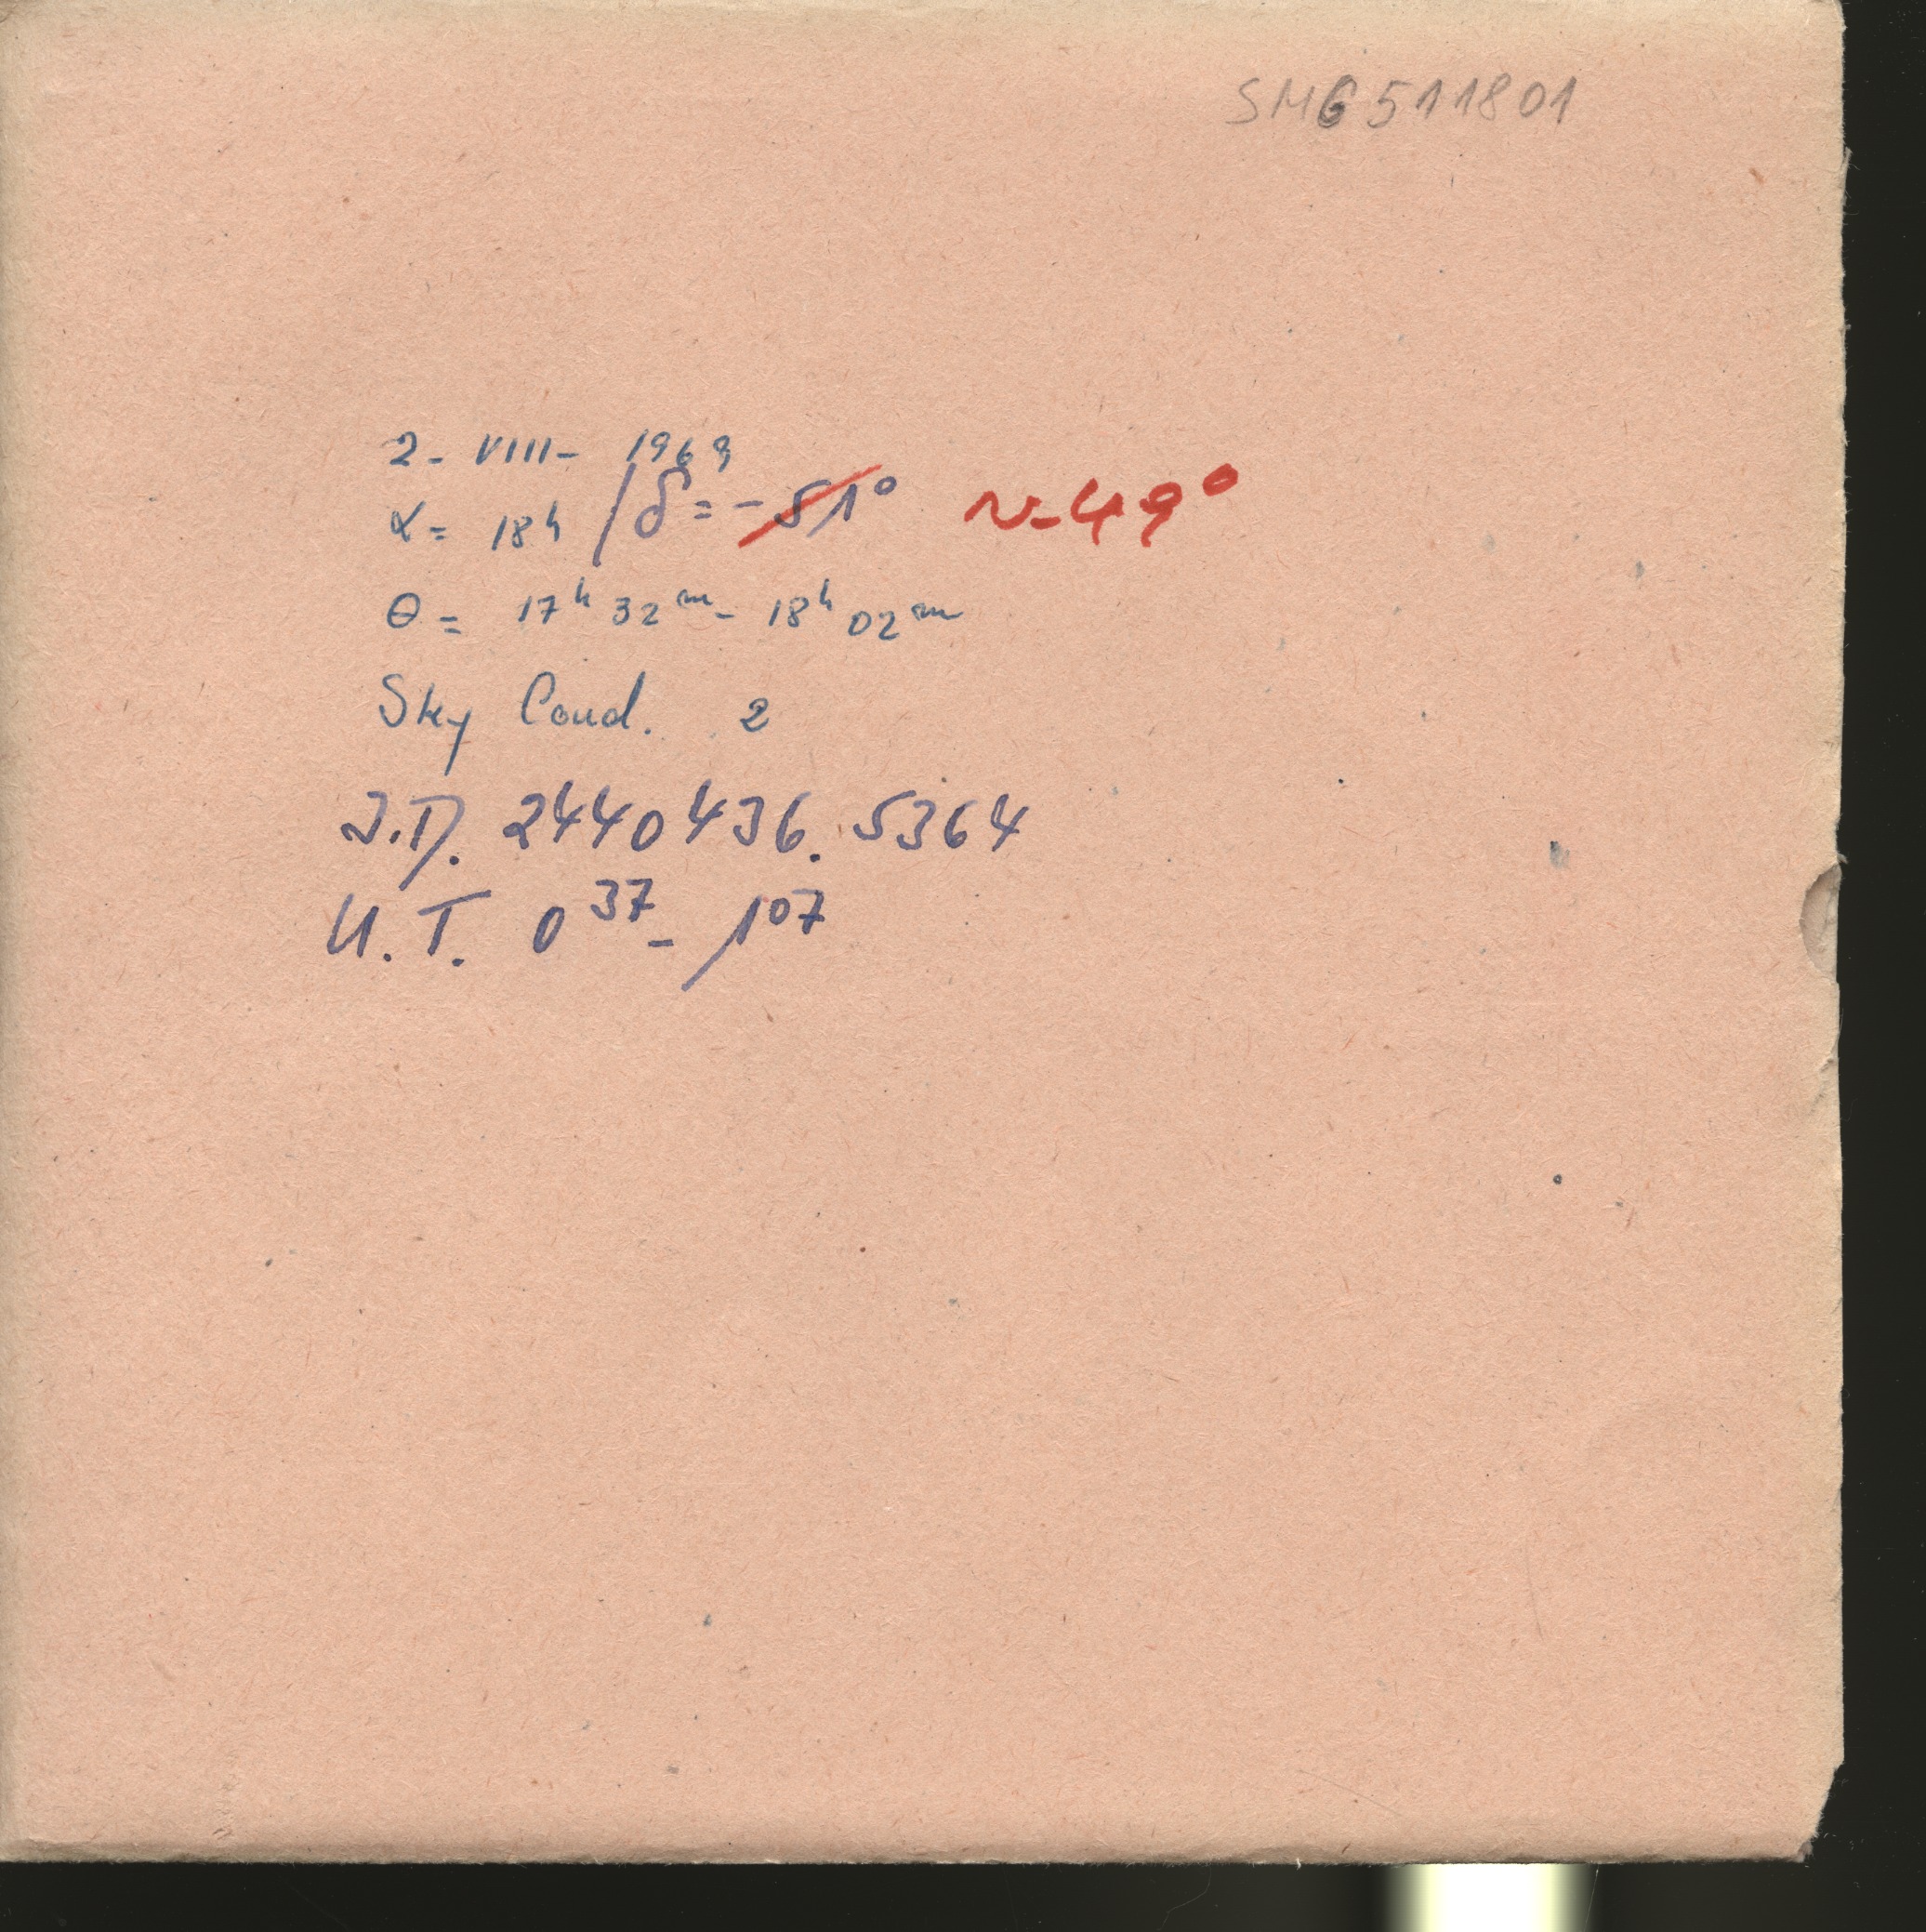 SMG511801
2- VIII- 1969
α= 18h / δ=-51° ~-49°
θ= 17h 32m- 18h 02m
Sky Cond. 2
J.D. 2440436.5364
U.T. 0 37- 1 07